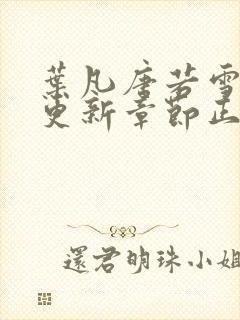 葉凡唐若雪
更新章節正
還君明珠小姐